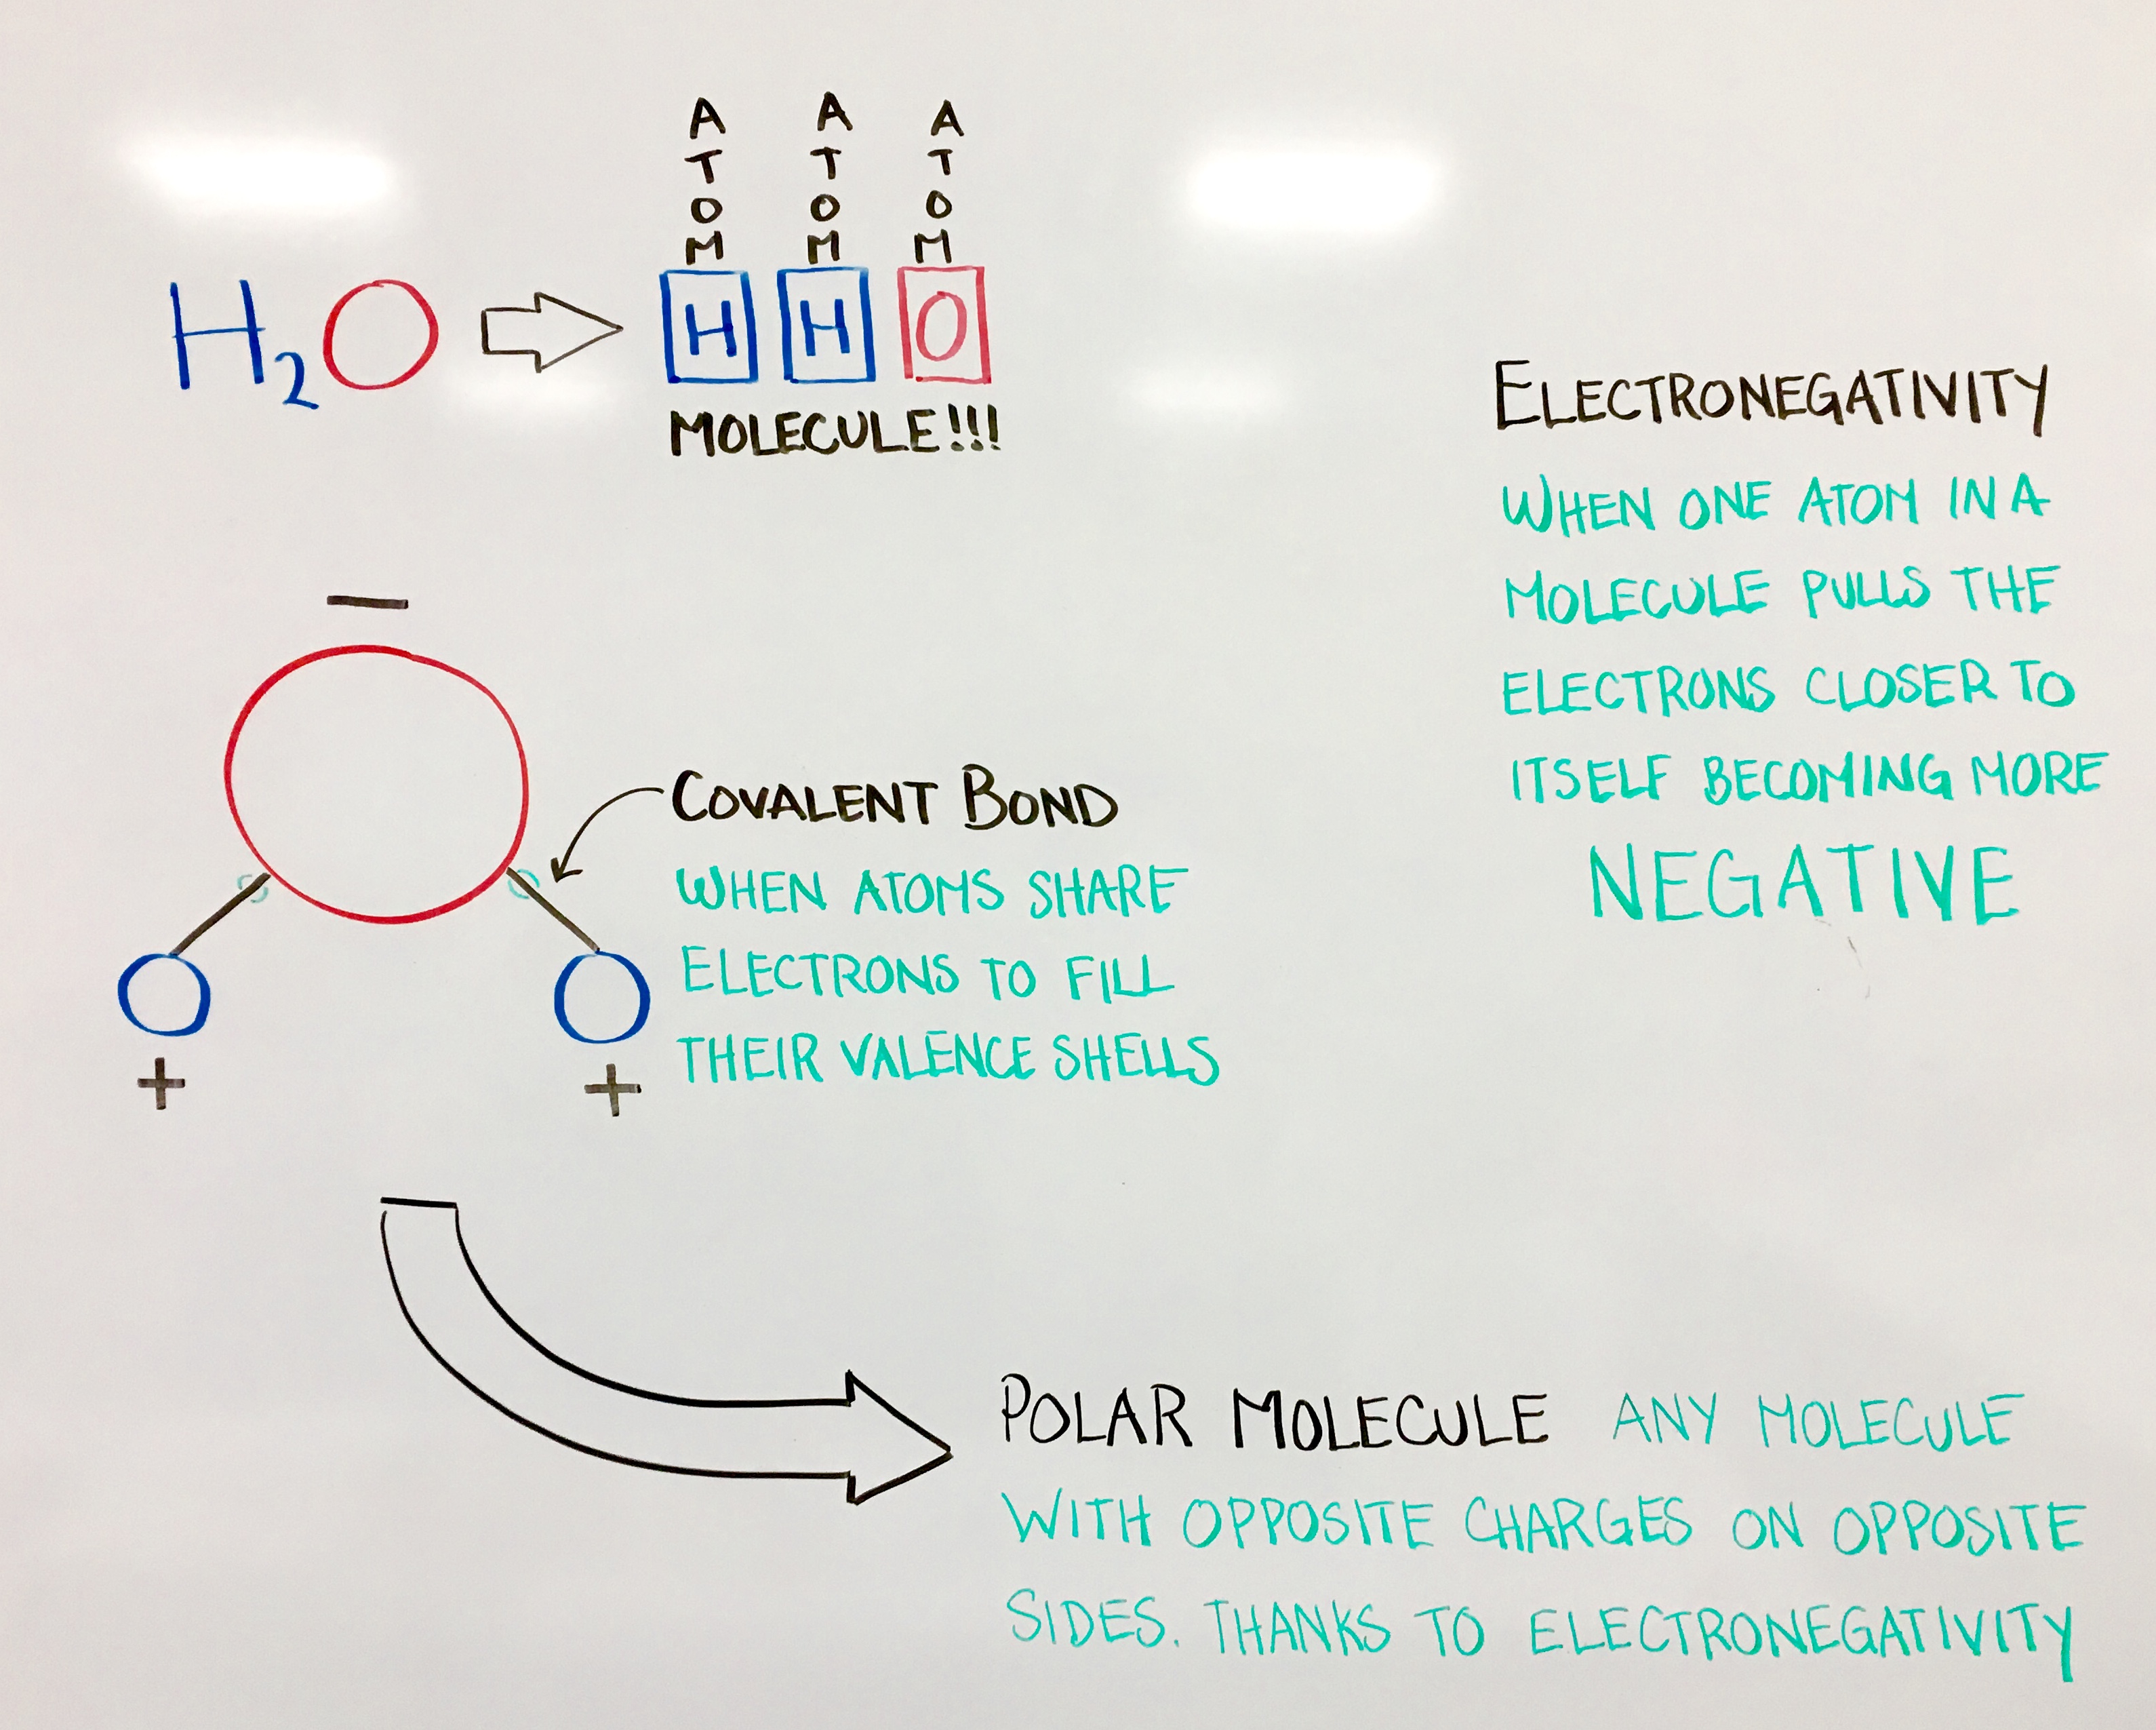 ATOM ATOM ATOM
H₂O H H O
MOLECULE!!!
ELECTRONEGATIVITY
WHEN ONE ATOM IN A
MOLECULE PULLS THE
ELECTRONS CLOSER TO
ITSELF BECOMING MORE
NEGATIVE
−
COVALENT BOND
WHEN ATOMS SHARE
ELECTRONS TO FILL
THEIR VALENCE SHELLS
+ +
POLAR MOLECULE ANY MOLECULE
WITH OPPOSITE CHARGES ON OPPOSITE
SIDES. THANKS TO ELECTRONEGATIVITY